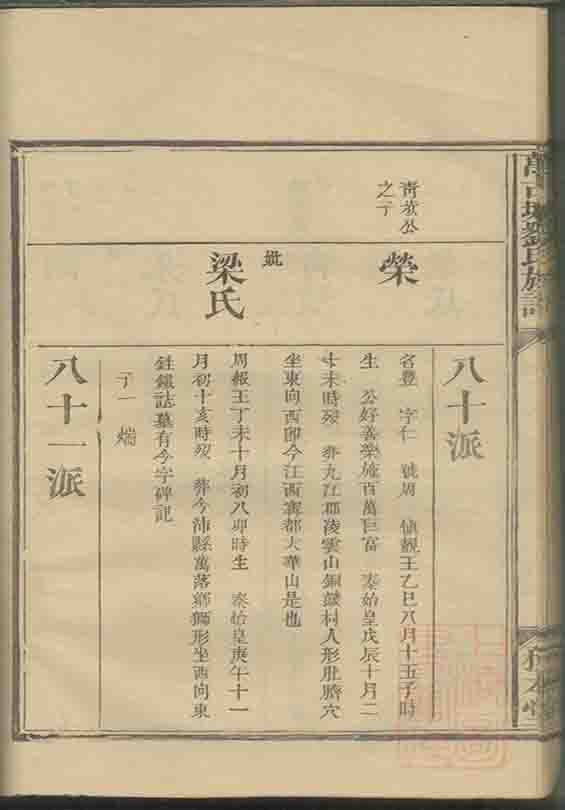 劉氏族譜
八十派
青㳀公
之子
榮
名豊 字仁 號周 慎靚王乙巳八月十五子時
生 公好善樂施百萬巨富 秦始皇戊辰十月二
十未時歿 葬九江郡凌雲山銅鼓村人形肚臍穴
坐東向西卽今江西寧都大華山是也
妣
梁氏
周赧王丁未十月初八卯時生 秦始皇庚午十一
月初十亥時歿 葬今沛縣萬落鄉獅形坐西向東
鉎鐵誌墓有今字碑記
子一 端
八十一派